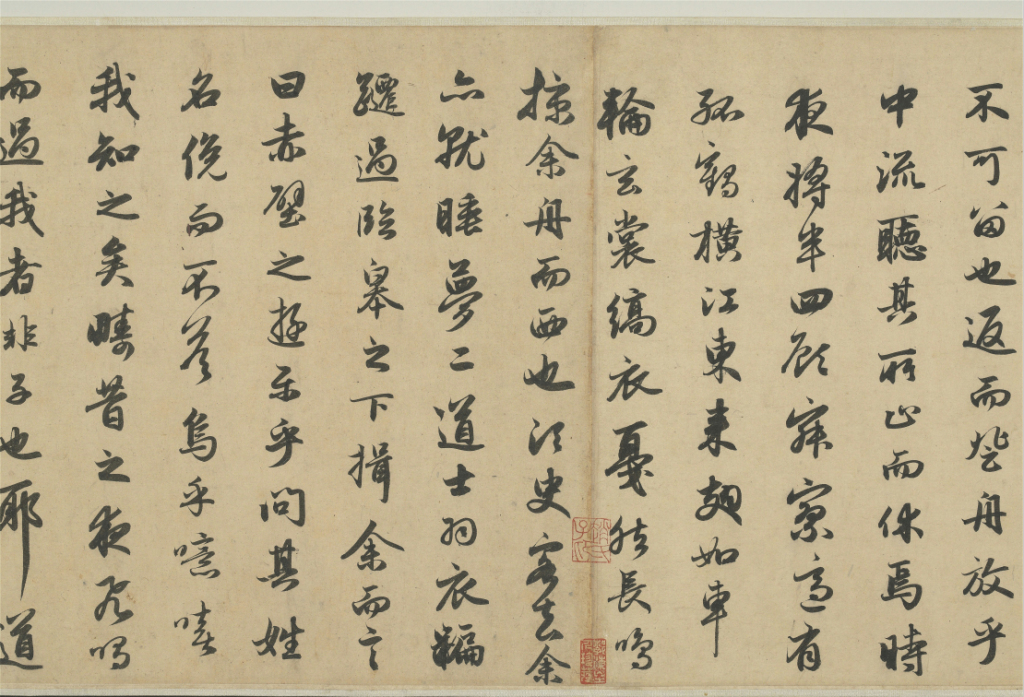 不可留也返而登舟放乎
中流聽其所止而休焉時
夜將半四顧寂寥適有
孤鶴橫江東來翅如車
輪玄裳縞衣戛然長鳴
掠余舟而西也須臾客去余
亦就睡夢二道士羽衣蹁
躚過臨皋之下揖余而言
曰赤壁之遊樂乎問其姓
名俛而不答烏乎噫嘻
我知之矣疇昔之夜飛鳴
而過我者非子也耶道